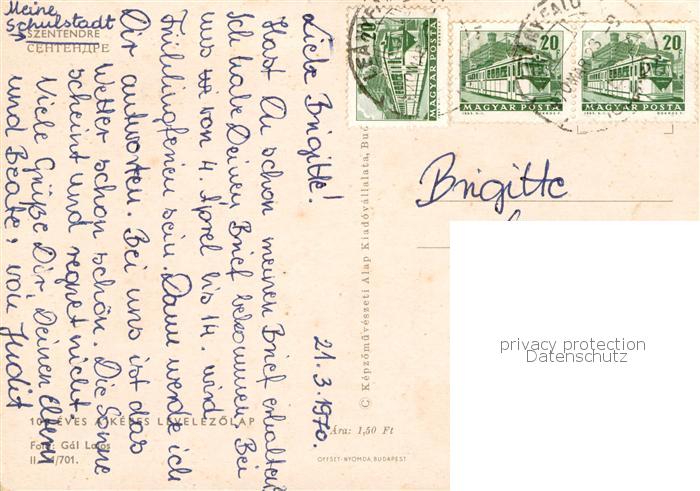 Meine
Schulstadt
SZENTENDRE
СЕНТЕНДРЕ
21. 3. 1970.
Liebe Brigitte!
Hast Du schon meinen Brief erhalten?
Ich habe Deinen Brief bekommen. Bei
uns wird von 4. Aprel bis 14.
Frühlingferien sein. Dann werde ich
Dir antworten. Bei uns ist das
Wetter schon schön. Die Sonne
scheint und regnet nicht.
Viele Grüße Dir, Deinen Eltern
und Beate, von Judit
100 ÉVES A KÉPES LEVELEZŐLAP
Foto: Gál Lajos
© Képzőművészeti Alap Kiadóvállalata, Bud
Ára: 1,50 Ft
OFFSET-NYOMDA, BUDAPEST
20
MAGYAR POSTA
20
MAGYAR POSTA
20
MAGYAR POSTA
Brigitte
privacy protection
Datenschutz